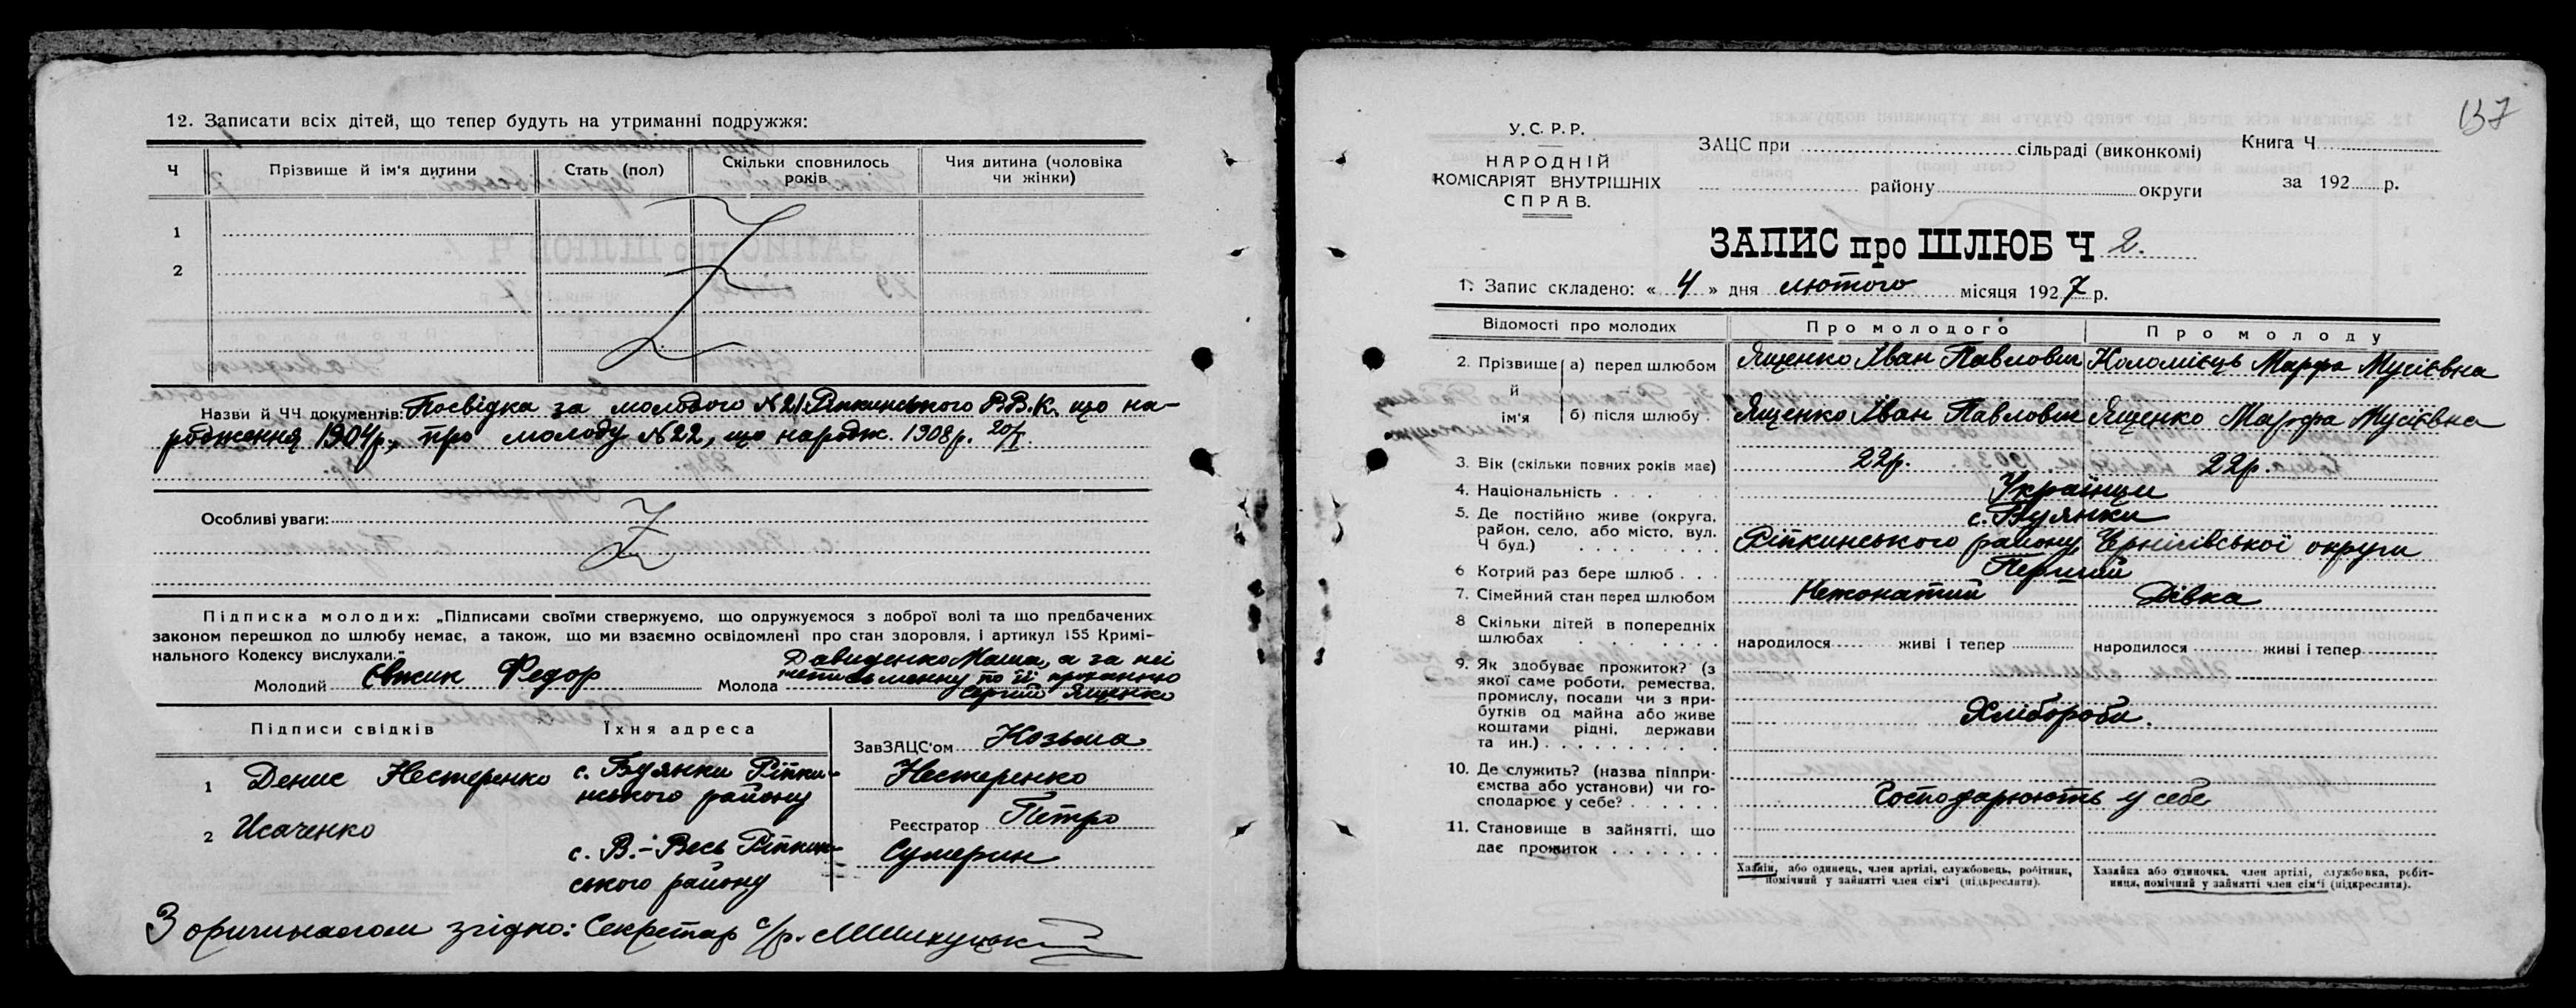 12. Записати всіх дітей, що тепер будуть на утриманні подружжя:
Ч
Прізвище й ім'я дитини
Стать (пол)
Скільки сповнилось років
Чия дитина (чоловіка чи жінки)
1
2
Назви й ЧЧ документів: Посвідка за молодого №21 Ріпкинського Р.В.К. що на-
родження 1904р., про молоду №22, що народж. 1908р. 20/I
Особливі уваги:
Підписка молодих: „Підписами своїми стверджуємо, що одружуємося з доброї волі та що предбачених
законом перешкод до шлюбу немає, а також, що ми взаємно освідомлені про стан здоровля, і артикул 155 Кримі-
нального Кодексу вислухали."
Молодий Євжик Федор
Молода Давиденко Маша, а за неї
неписьменну по її проханню
Сергій Ященко
Підписи свідків
Їхня адреса
1 Денис Нестеренко с. Буянки Ріпки-
нського району
2 Исаченко с. В.-Весь Ріпкин-
ського району
ЗавЗАЦС'ом Козьма
Нестеренко
Реєстратор Петро
Сумерин
З оригиналом згідно: Секретар с/р.
137
У.С.Р.Р.
НАРОДНІЙ
КОМІСАРІЯТ ВНУТРІШНІХ
СПРАВ.
ЗАЦС при сільраді (виконкомі)
району округи
Книга Ч
за 192 р.
ЗАПИС про ШЛЮБ Ч 2.
1. Запис складено: « 4 » дня лютого місяця 1927 р.
Відомості про молодих
Про молодого
Про молоду
2. Прізвище й ім'я
а) перед шлюбом Ященко Іван Павлович Коломієць Марфа Мусіївна
б) після шлюбу Ященко Іван Павлович Ященко Марфа Мусіївна
3. Вік (скільки повних років має) 22р. 22р.
4. Національність Українци
5. Де постійно живе (округа, с. Буянки
район, село, або місто, вул.
Ч буд.) Ріпкинського району Чернігівської округи
6 Котрий раз бере шлюб Перший
7. Сімейний стан перед шлюбом Нежонатий Дівка
8 Скільки дітей в попередніх
шлюбах народилося живі і тепер народилося живі і тепер
9. Як здобуває прожиток? (з
якої саме роботи, ремества,
промислу, посади чи з при-
бутків од майна або живе Хлібороби.
коштами рідні, держави
та ин.)
10. Де служить? (назва підпри-
ємства або установи) чи го-
сподарює у себе? Господарюють у себе
11. Становище в зайнятті, що
дає прожиток
Хазяїн, або одинець, член артілі, службовець, робітник,
помічний у зайнятті член сім'ї (підкреслити).
Хазяйка або одиночка, член артілі, службовка, робіт-
ниця, помічний у зайнятті член сім'ї (підкреслити).